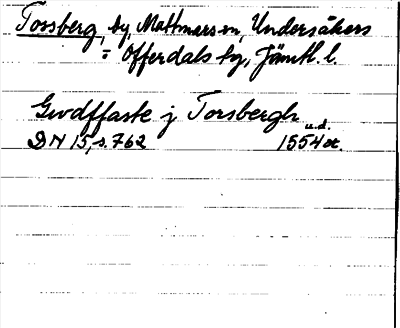 Torsberg, by, Mattmars sn, Undersåkers
o. Offerdals tg, Jämtl. l.
Gudffaste j Torsbergh
u.d.
DN 15, s. 762 1554 or.